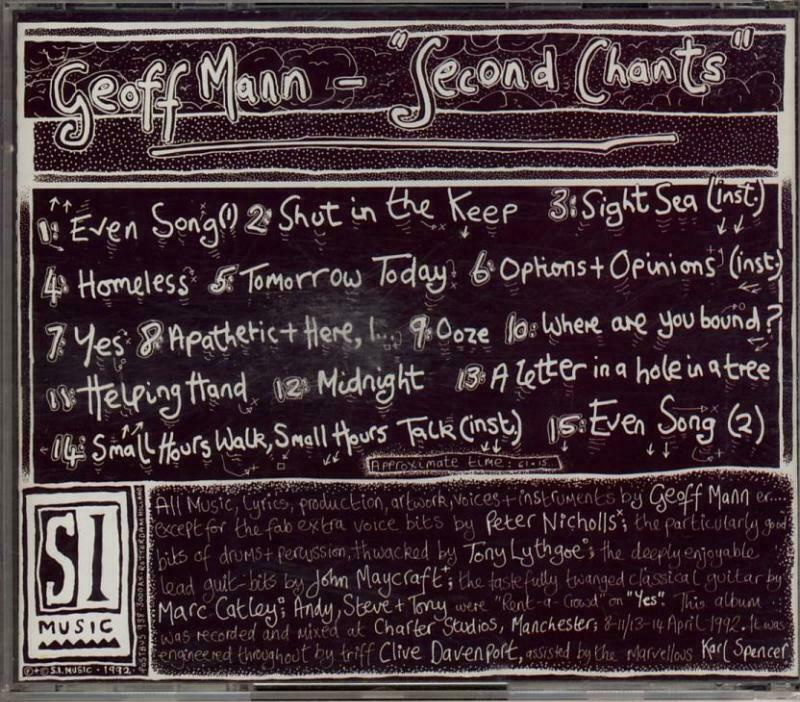 Geoff Mann - "Second Chants"
1: Even Song(1) 2: Shut in the Keep 3: Sight Sea (inst.)
4: Homeless 5: Tomorrow Today 6: Options + Opinions (inst.)
7: Yes 8: Apathetic + Here, I... 9: Ooze 10: Where are you bound?
11: Helping Hand 12: Midnight 13: A letter in a hole in a tree
14: Small Hours Walk, Small Hours Talk (inst.) 15: Even Song (2)
Approximate time: 61-15
All Music, Lyrics, production, artwork, voices + instruments by Geoff Mann er....
except for the fab extra voice bits by Peter Nicholls x; the particularly good
bits of drums + percussion, thwacked by Tony Lythgoe; the deeply enjoyable
lead guit-bits by John Maycraft; the tastefully twanged classical guitar by
Marc Catley; Andy, Steve + Tony were "Rent-a-Crowd" on "Yes". This album
was recorded and mixed at Charter Studios, Manchester; 8-11/13-14 April 1992. It was
engineered throughout by triff Clive Davenport, assisted by the Marvellous Karl Spencer
SI
MUSIC
© + ℗ S.I. MUSIC · 1992